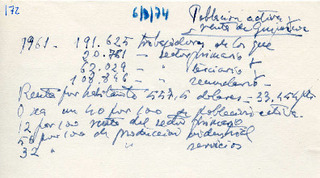 172
6/9/74
Población activa
y renta de Guipúzcoa
1961 - 191.625 trabajadores de los que
20.781 - sector primario
62.029 - " terciario
108.846 - " secundario
Renta por habitante 557,6 dolares - 33.454 pts
O sea un 40 por 100 de población activa.
12 por 100 renta del sector primario
56 por 100 de producción industrial
32 " " servicios